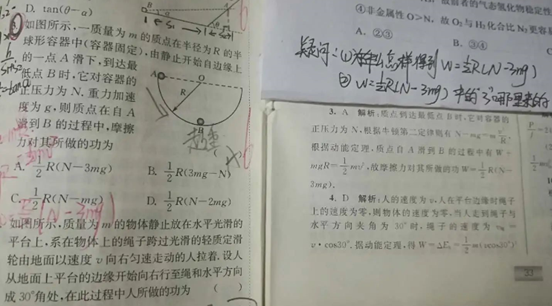 D. tan(θ-α)
如图所示,一质量为m的质点在半径为R的半
球形容器中(容器固定),由静止开始自边缘上
的一点A滑下,到达最
低点B时,它对容器的
正压力为N.重力加速
度为g,则质点在自A
滑到B的过程中,摩擦
力对其所做的功为
A
O
R
B
A. 1/2R(N-3mg)
B. 1/2R(3mg-N)
C. 1/2R(N-mg)
D. 1/2R(N-2mg)
如图所示,质量为m的物体静止放在水平光滑的
平台上,系在物体上的绳子跨过光滑的轻质定滑
轮由地面以速度v向右匀速走动的人拉着,设人
从地面上平台的边缘开始向右行至绳和水平方向
成30°角处,在此过程中人所做的功为 ( )
④非金属性O>N,故O₂与H₂化合比N₂更容
A. ②③
B. ③④
疑问:(1)怎样得到W=1/2R(N-3mg)
(2)W=1/2R(N-3mg)中的“3”哪里来的
3. A 解析:质点到达最低点B时,它对容器的
正压力为N,根据牛顿第二定律有N-mg=mv²/R,
根据动能定理,质点自A滑到B的过程中有W+
mgR=1/2mv²,故摩擦力对其所做的功W=1/2R(N-
3mg).
4. D 解析:人的速度为v,人在平台边缘时绳子
上的速度为零,则物体的速度为零,当人走到绳子与
水平方向夹角为30°时,绳子的速度为
v·cos30°.据动能定理,得W=ΔEₖ=1/2m(vcos30°)²
23